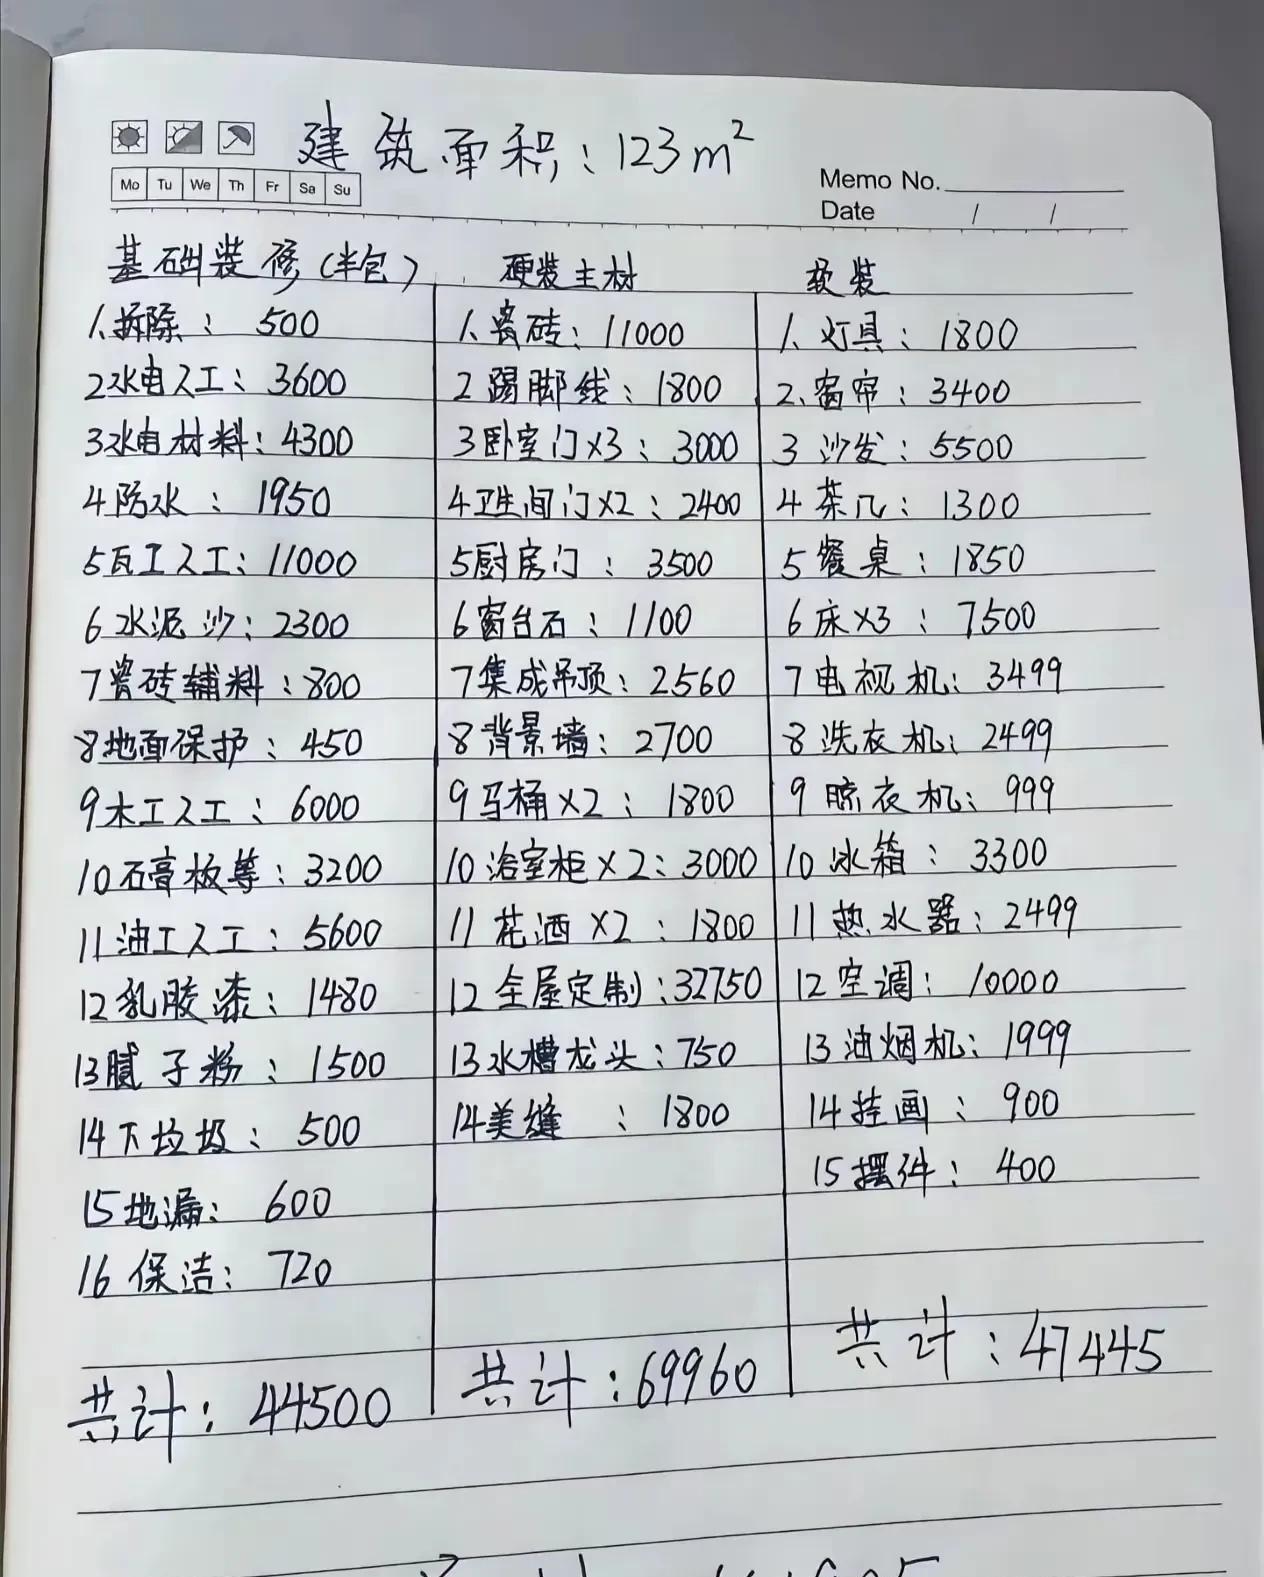 建筑面积：123m²
Mo Tu We Th Fr Sa Su
Memo No.
Date / /
基础装修（半包）
1、拆除：500
2水电人工：3600
3水电材料：4300
4防水：1950
5瓦工人工：11000
6水泥沙：2300
7瓷砖辅料：800
8地面保护：450
9木工人工：6000
10石膏板等：3200
11油工人工：5600
12乳胶漆：1480
13腻子粉：1500
14下垃圾：500
15地漏：600
16保洁：720
共计：44500
硬装主材
1、瓷砖：11000
2踢脚线：1800
3卧室门×3：3000
4卫生间门×2：2400
5厨房门：3500
6窗台石：1100
7集成吊顶：2560
8背景墙：2700
9马桶×2：1800
10浴室柜×2：3000
11花洒×2：1800
12全屋定制：32750
13水槽龙头：750
14美缝：1800
共计：69960
软装
1、灯具：1800
2、窗帘：3400
3沙发：5500
4茶几：1300
5餐桌：1850
6床×3：7500
7电视机：3499
8洗衣机：2499
9晾衣机：999
10冰箱：3300
11热水器：2499
12空调：10000
13油烟机：1999
14挂画：900
15摆件：400
共计：47445